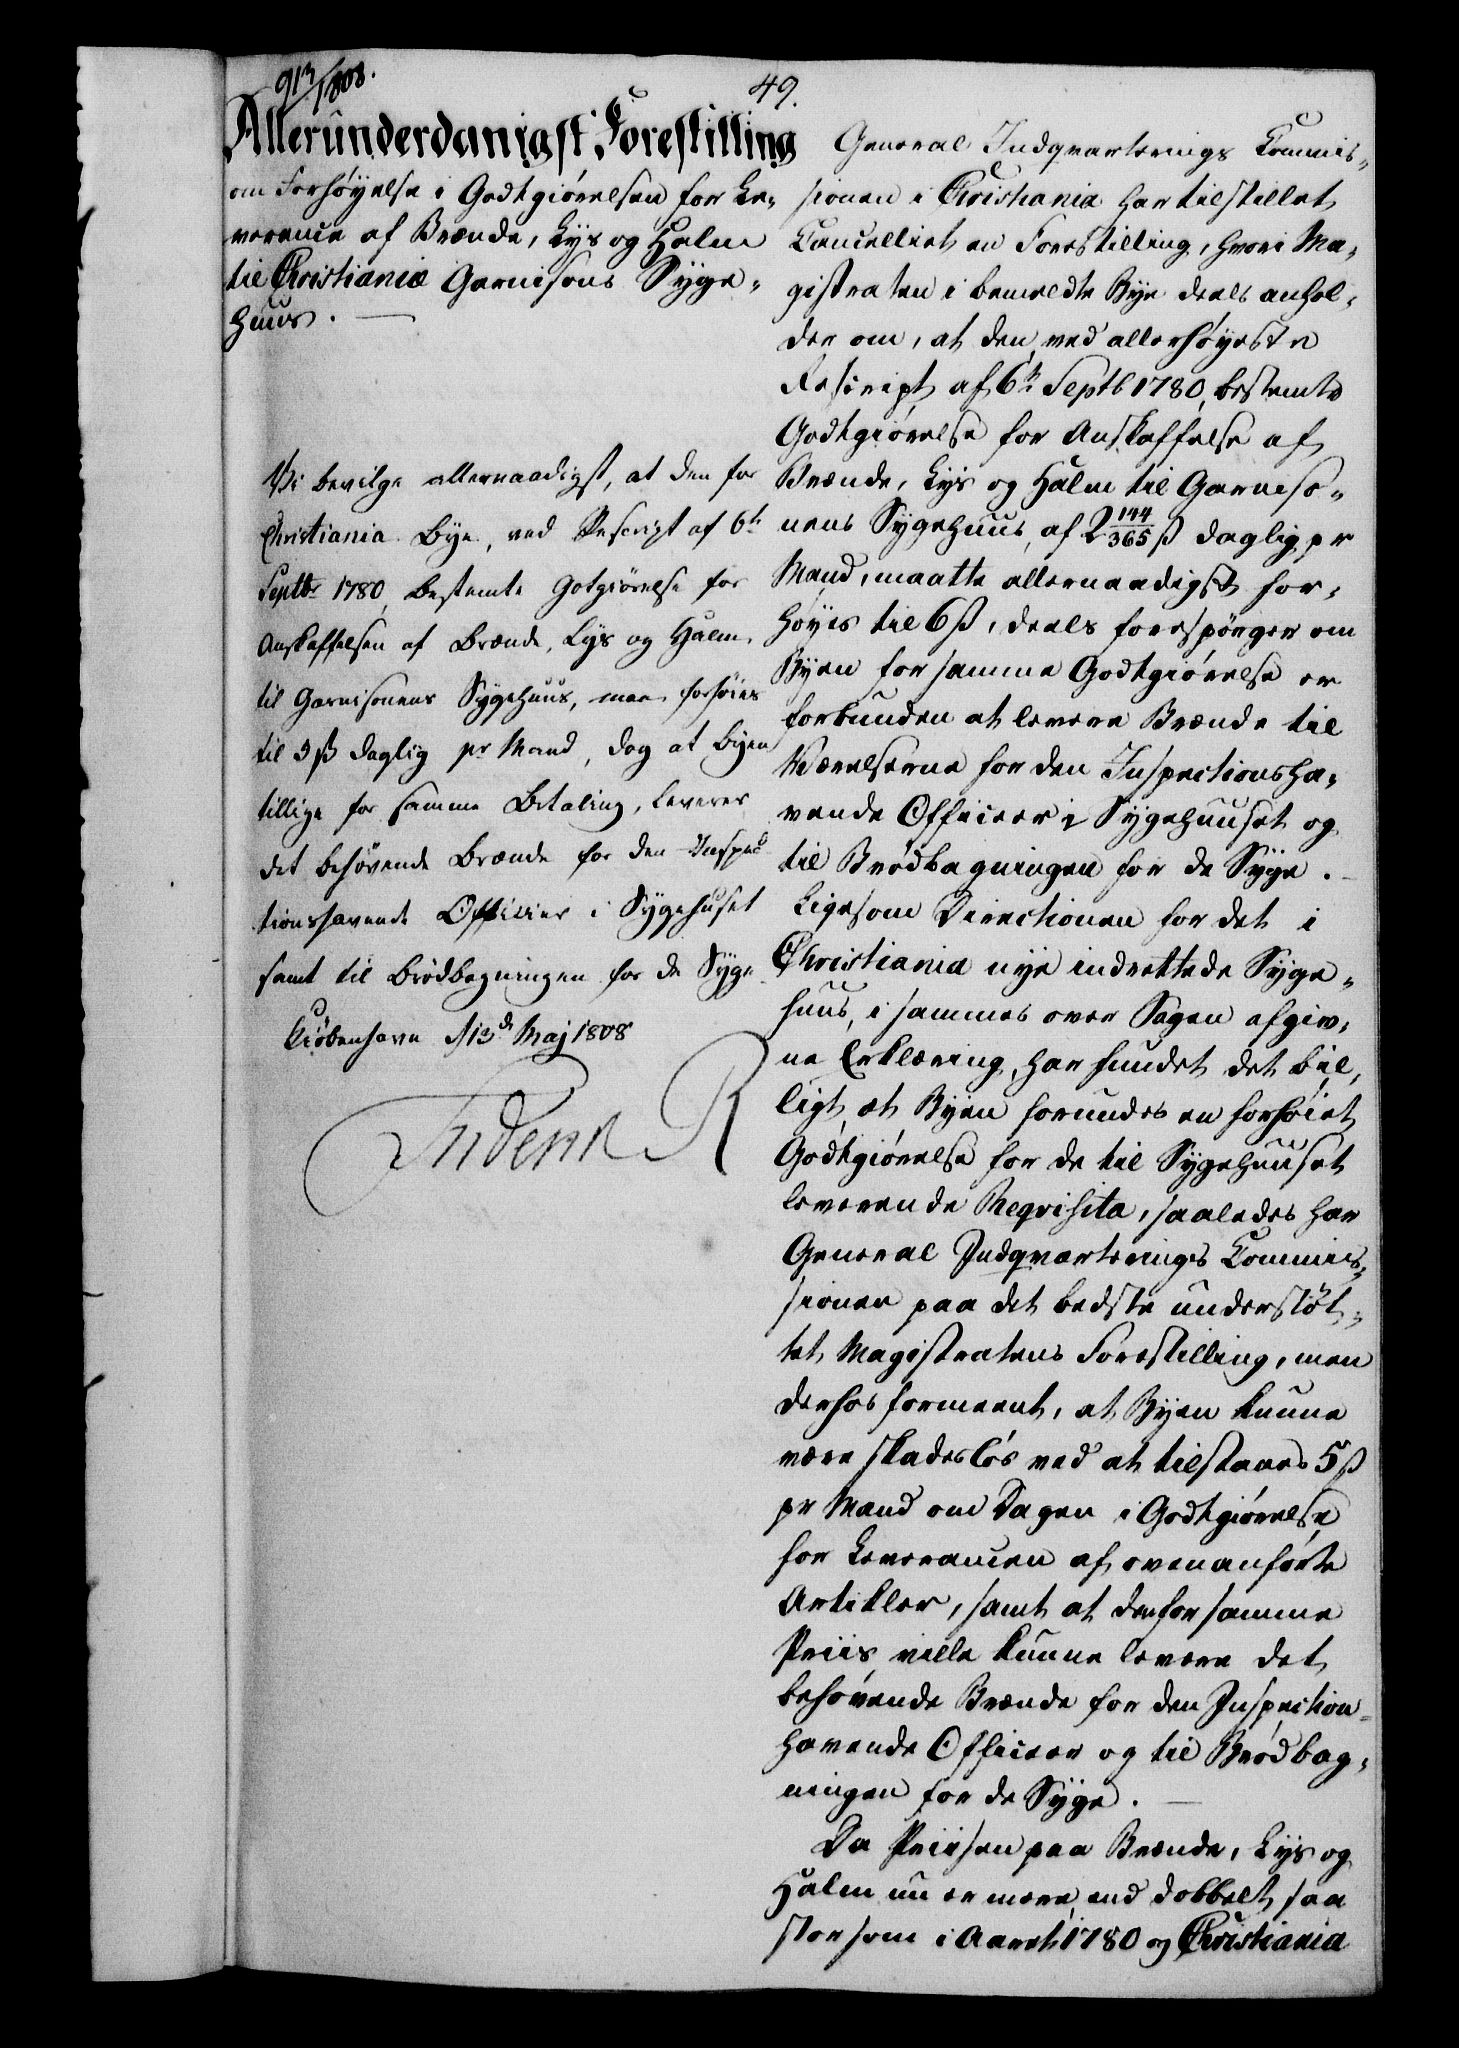 913/1808.
49.
Allerunderdanigst Forestilling
om Forhöyelse i Godtgiörelsen for Le-
verence af Brænde, Lys og Halm
til Christianiæ Garnisons Syge-
huus.
Vi bevilge allernaadigst, at den for
Christiania Bye, ved Rescript af 6te
Septbr 1780, bestemte Gotgiörelse for
Anskaffelsen af Brænde, Lys og Halm
til Garnisonens Sygehuus, maae forhöies
til 5 ß daglig pr Mand, dog at Byen
tillige for samme Betaling, leverer
det behövende Brænde for den Inspec
tionshavende Officier i Sygehuset
samt til Brödbagningen for de Syge.
Kiöbenhavn d 13de Maj 1808
Friderik R
General Indqvarterings Commis-
sionen i Christiania har tilstillet
Cancelliet en Forestilling, hvori Ma-
gistraten i bemeldte Bye deels anhol-
der om, at den, ved allerhöyeste
Rescript af 6te Septb 1780, bestemte
Godtgiörelse for Anskaffelse af
Brænde, Lys og Halm til Garniso-
nens Sygehuus, af 2 144/365 ß daglig pr
Mand, maatte allernaadigst for-
höyes til 6 ß, deels forespörger om
Byen for samme Godtgiörelse er
forbunden at levere Brænde til
Værelserne for den Inspectionsha-
vende Officeer i Sygehuuset og
til Brödbagningen for de Syge.
Ligesom Directionen for det i
Christiania nye indrettede Syge-
huus, i sammes over Sagen afgiv-
ne Erklæring, har fundet det bil-
ligt, at Byen forundes en forhöiet
Godtgiörelse for de til Sygehuuset
leverende Reqvisita, saaledes har
General Indqvarterings Commis-
sionen paa det bedste understöt-
tet Magistratens Forestilling, men
derhos formeent, at Byen kunne
være skadeslös ved at tilstaaes 5 ß
pr Mand om Dagen i Godtgiörelse
for Leverancen af ovenanförte
Artikler, samt at den for samme
Priis ville kunne levere det
behövende Brænde for den Inspection-
havende Officeer og til Brödbag-
ningen for de Syge.
Da Priisen paa Brænde, Lys og
Halm nu er mere end dobbelt saa
stor som i Aaret 1780 og Christiania